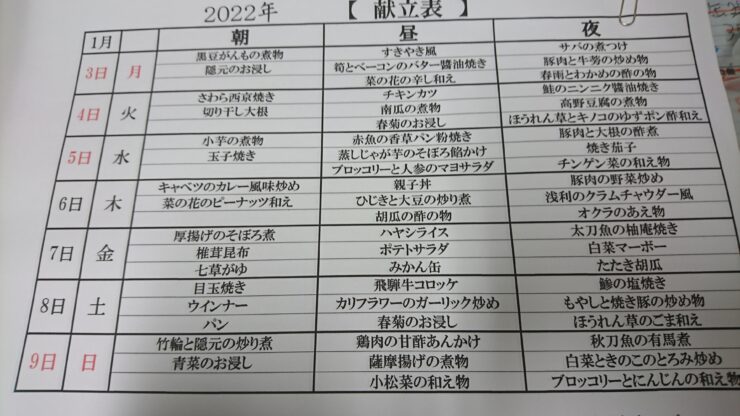 2022年 【 献立表 】
1月 朝 昼 夜
3日 月
黒豆がんもの煮物
隠元のお浸し
すきやき風
筍とベーコンのバター醬油焼き
菜の花の辛し和え
サバの煮つけ
豚肉と牛蒡の炒め物
春雨とわかめの酢の物
4日 火
さわら西京焼き
切り干し大根
チキンカツ
南瓜の煮物
春菊のお浸し
鮭のニンニク醬油焼き
高野豆腐の煮物
ほうれん草とキノコのゆずポン酢和え
5日 水
小芋の煮物
玉子焼き
赤魚の香草パン粉焼き
蒸しじゃが芋のそぼろ餡かけ
ブロッコリーと人参のマヨサラダ
豚肉と大根の酢煮
焼き茄子
チンゲン菜の和え物
6日 木
キャベツのカレー風味炒め
菜の花のピーナッツ和え
親子丼
ひじきと大豆の炒り煮
胡瓜の酢の物
豚肉の野菜炒め
浅利のクラムチャウダー風
オクラのあえ物
7日 金
厚揚げのそぼろ煮
椎茸昆布
七草がゆ
ハヤシライス
ポテトサラダ
みかん缶
太刀魚の柚庵焼き
白菜マーボー
たたき胡瓜
8日 土
目玉焼き
ウインナー
パン
飛騨牛コロッケ
カリフラワーのガーリック炒め
春菊のお浸し
鯵の塩焼き
もやしと焼き豚の炒め物
ほうれん草のごま和え
9日 日
竹輪と隠元の炒り煮
青菜のお浸し
鶏肉の甘酢あんかけ
薩摩揚げの煮物
小松菜の和え物
秋刀魚の有馬煮
白菜ときのこのとろみ炒め
ブロッコリーとにんじんの和え物